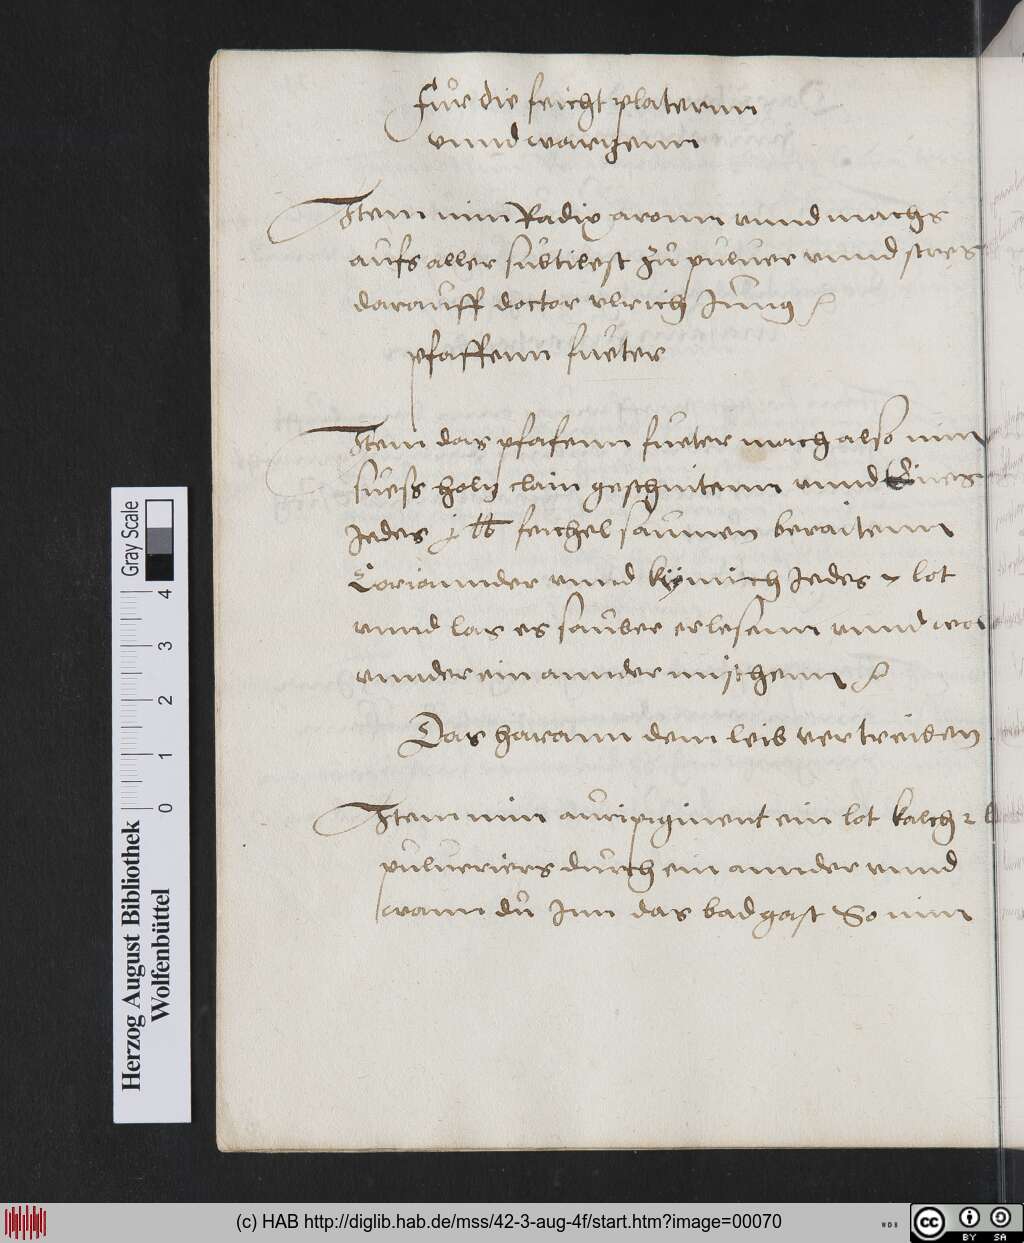 Fůr die feicht platernn
vnnd warzenn
Item nim Radix aronn vnnd machs
aufs aller subtilest zů puluer vnnd strees
darauff doctor vlrich Jung
pfaffenn fueter
Item das pfafenn fueter mach also nim
suess holtz clain geschnitenn vnnd
Jedes j lb feichel saumen beraitenn
Coriannder vnnd kÿmich Jedes lot
vnnd las es sauber erlesenn vnnd wol
vnnder ein annder mischenn
Das harann dem leib vertreiben
Item nim auripigment ein lot kalch 2 l
pulueriers durch ein annder vnnd
wann dů Inn das bad gast So nim
Gray Scale
4
3
2
1
0
Herzog August Bibliothek
Wolfenbüttel
(c) HAB http://diglib.hab.de/mss/42-3-aug-4f/start.htm?image=00070
WDB
cc
BY SA